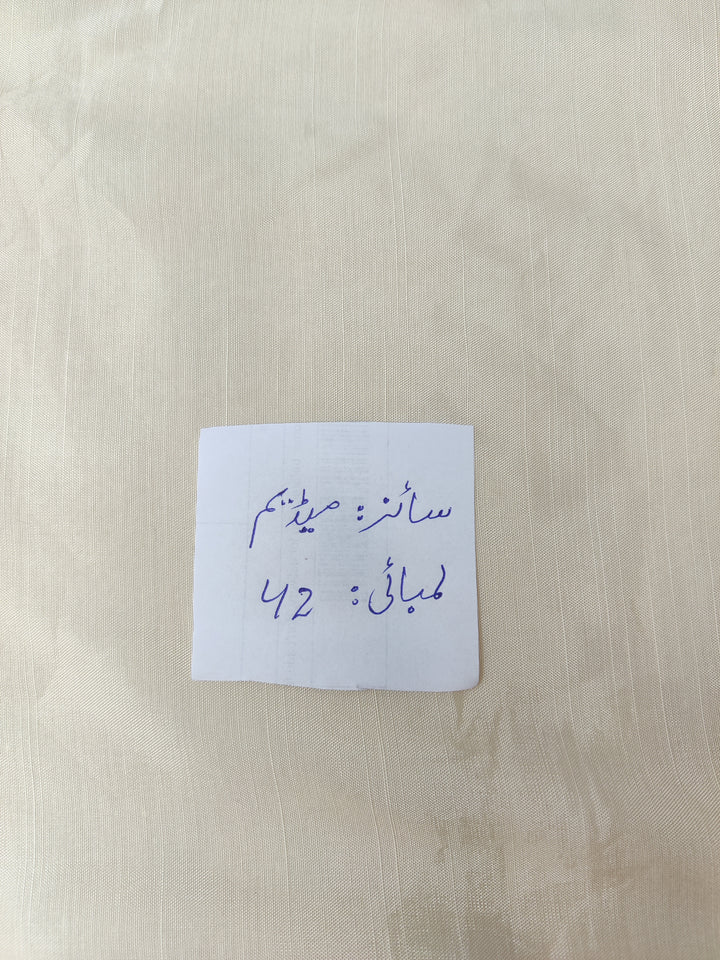 سائز: میڈیم
لمبائی: 42